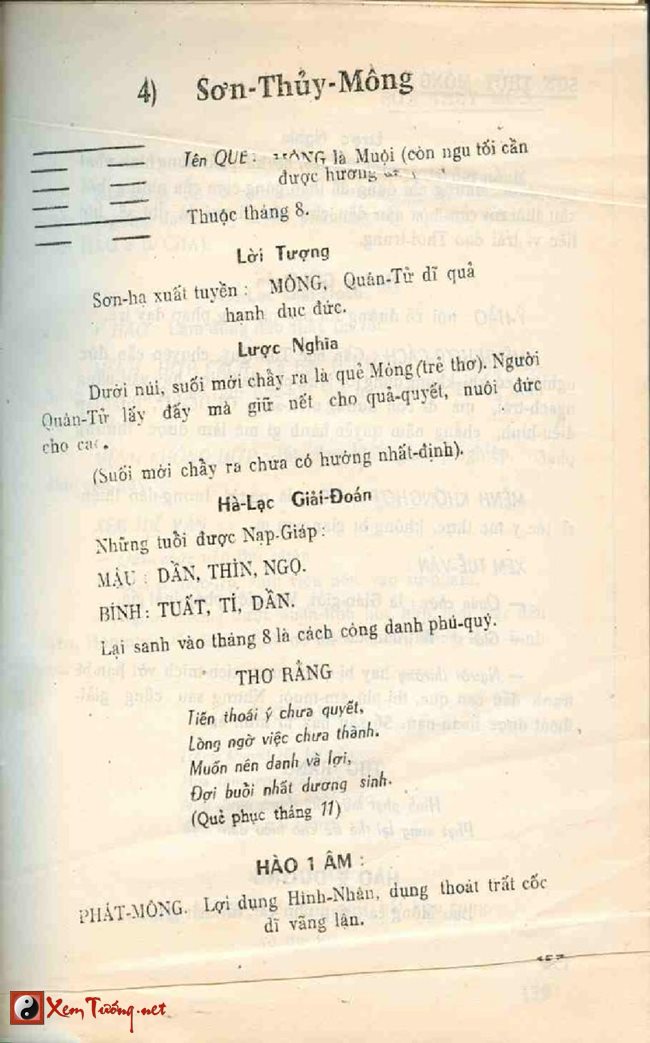 4) Sơn-Thủy-Mông
Tên QUẺ: MÔNG là Muội (còn ngu tối cần
được hương
Thuộc tháng 8.
Lời Tượng
Sơn-hạ xuất tuyền : MÔNG, Quân-Tử dĩ quả
hạnh dục đức.
Lược Nghĩa
Dưới núi, suối mới chầy ra là quẻ Mông (trẻ thơ). Người
Quân-Tử lấy đấy mà giữ nết cho quả-quyết, nuôi đức
cho
(Suối mới chầy ra chưa có hướng nhất-định).
Hà-Lạc Giải-Đoán
Những tuổi được Nạp-Giáp :
MẬU : DẦN, THÌN, NGỌ.
BÍNH : TUẤT, TÍ, DẦN.
Lại sanh vào tháng 8 là cách công danh phú-quý.
THƠ RẰNG
Tiến thoái ý chưa quyết,
Lòng ngờ việc chưa thành.
Muốn nên danh và lợi,
Đợi buổi nhất dương sinh.
(Quẻ phục tháng 11)
HÀO 1 ÂM :
PHÁT-MÔNG. Lợi dụng Hình-Nhân, dụng thoát trất cốc
dĩ vãng lận.
XemTướng.net